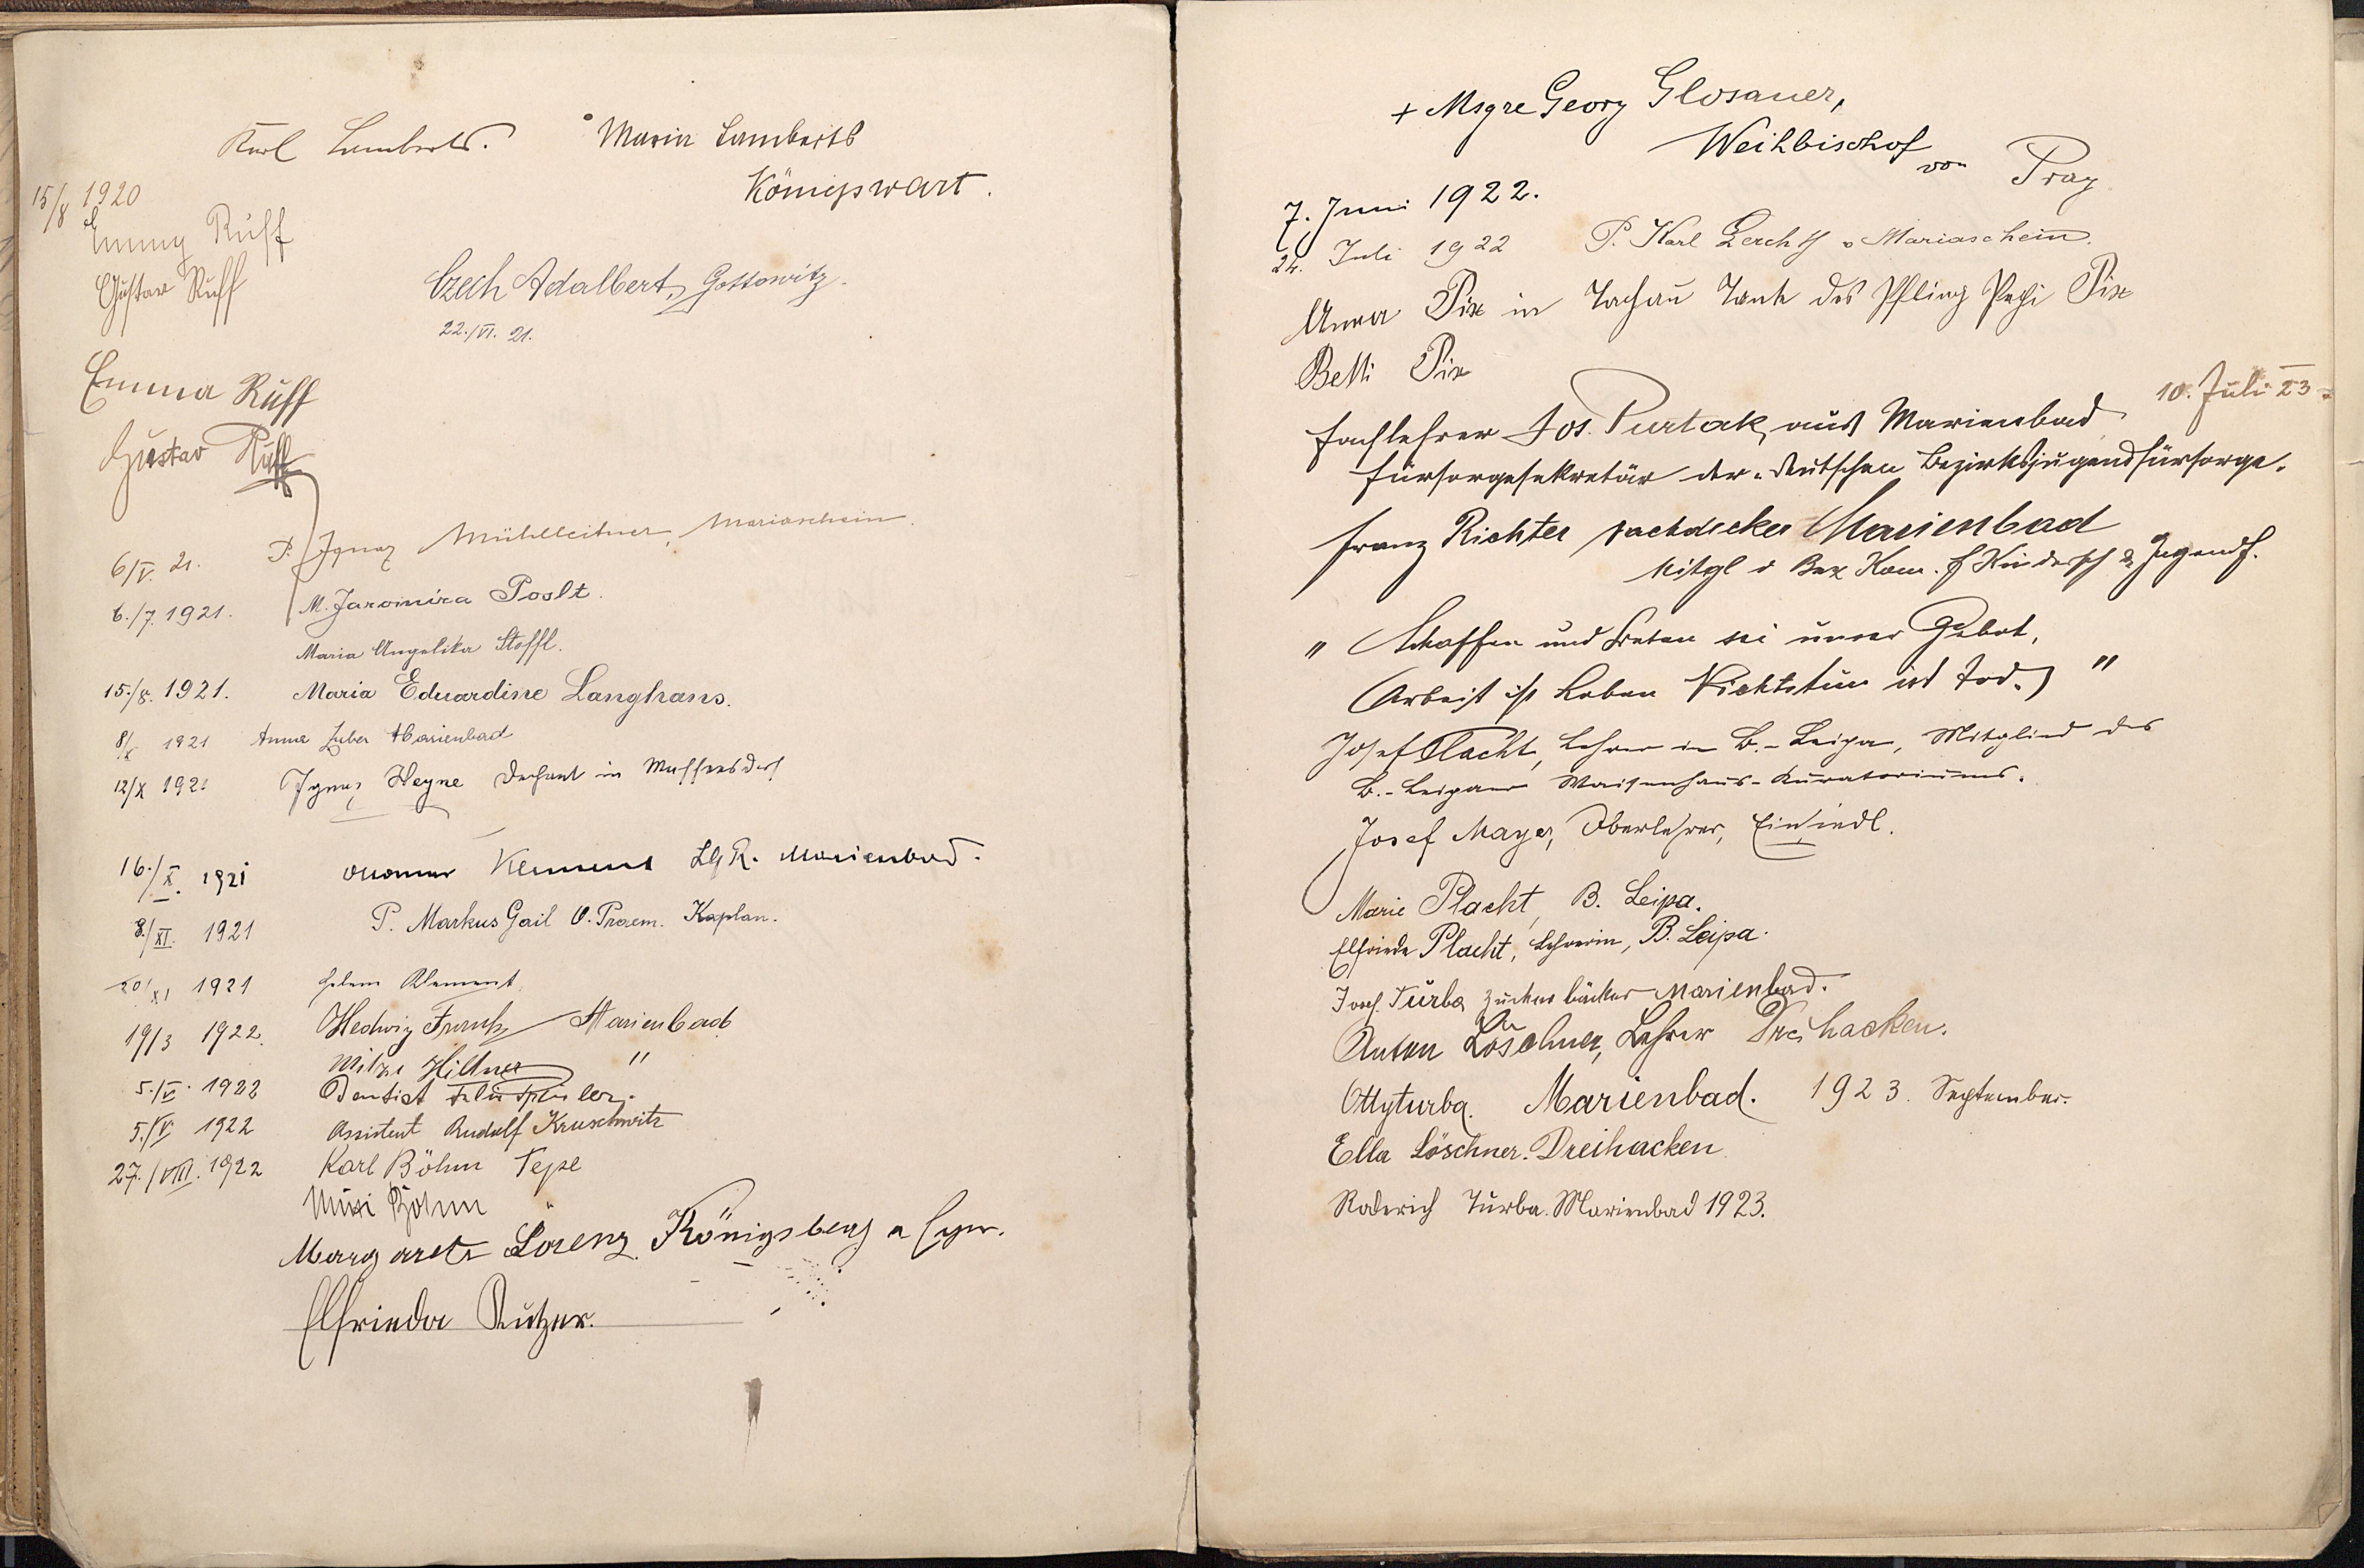 Karl Lamberts. Maria Lamberts
Königswart.
15/8 1920
Emmy Ruff
Gustav Ruff
Czech Adalbert, Gottowitz.
22./VI. 21.
Emma Ruff
Gustav Ruff
6/V. 21. P. Ignaz Mühlleitner, Mariaschein.
6./7. 1921. M. Jaromira Poslt.
Maria Angelika Stoffl.
15./8. 1921. Maria Eduardine Langhans.
8/X 1921 Anna Zuber Marienbad
12/X 1921 Ignaz Heyne Dechant in Maffersdorf
16./X. 1921 Klement LGR. Marienbad.
8./XI. 1921 P. Markus Gail O. Praem. Kaplan.
20/XI 1921 Helene Klement
19/3 1922. Hedwig Marienbad
Mitzi Hiltner "
5./V. 1922 Dentist
5./V 1922 Assistent Rudolf Kruschwitz
27./VIII. 1922 Karl Böhm Tepl
Mizi Böhm
Margarete Lorenz Königsberg a Eger.
Elfrieda Rutzer.
+ Msgre Georg Glosauer,
Weihbischof von Prag
7. Juni 1922.
24. Juli 1922 P. Karl Lerch SJ v Mariaschein.
Anna Pix in Tachau Tante des Pfling Pepi Pix
Betti Pix
10. Juli 23.
Fachlehrer Jos. Purtak, aus Marienbad
Fürsorgesekretär der deutschen Bezirksjugendfürsorge.
Franz Richter Dachdecker Marienbad
Mitgl d Bez Kom. f Kindersch & Jugendf.
" Schaffen und Streben sei unser Gebot,
(Arbeit ist Leben Nichtstun ist Tod.) "
Josef Placht, Lehrer in B.-Leipa, Mitglied des
B.-Leipaer Waisenhaus-Kuratoriums.
Josef Mayer, Oberlehrer, Einsiedl.
Marie Placht, B. Leipa.
Elfriede Placht, Lehrerin, B. Leipa.
Josef Turba Zuckerbäcker Marienbad.
Anton Löschner, Lehrer Dreihacken.
Otty Turba. Marienbad. 1923. September.
Ella Löschner. Dreihacken
Roderich Turba. Marienbad 1923.